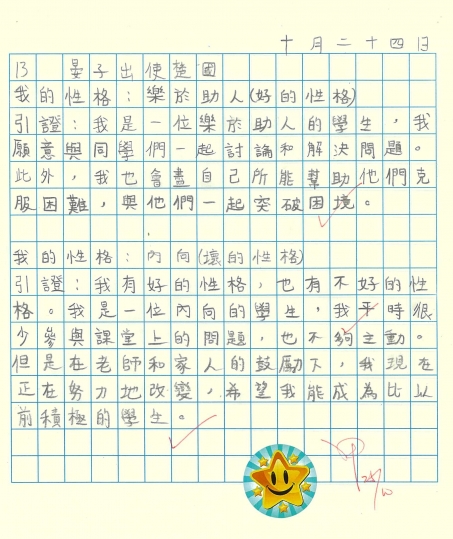 十月二十四日
13 晏子出使楚國
我的性格：樂於助人(好的性格)
引證：我是一位樂於助人的學生，我
願意與同學們一起討論和解決問題。
此外，我也會盡自己所能幫助他們克
服困難，與他們一起突破困境。
我的性格：內向(壞的性格)
引證：我有好的性格，也有不好的性
格。我是一位內向的學生，我平時很
少參與課堂上的問題，也不夠主動。
但是在老師和家人的鼓勵下，我現在
正在努力地改變，希望我能成為比以
前積極的學生。
25/10